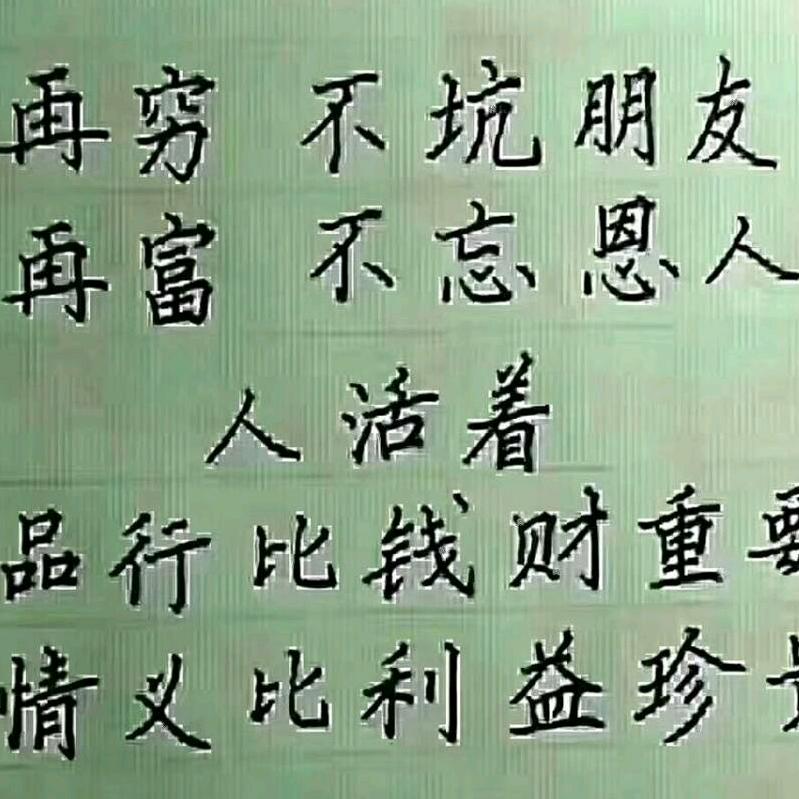 再穷 不坑朋友
再富 不忘恩人
人活着
品行比钱财重要
情义比利益珍